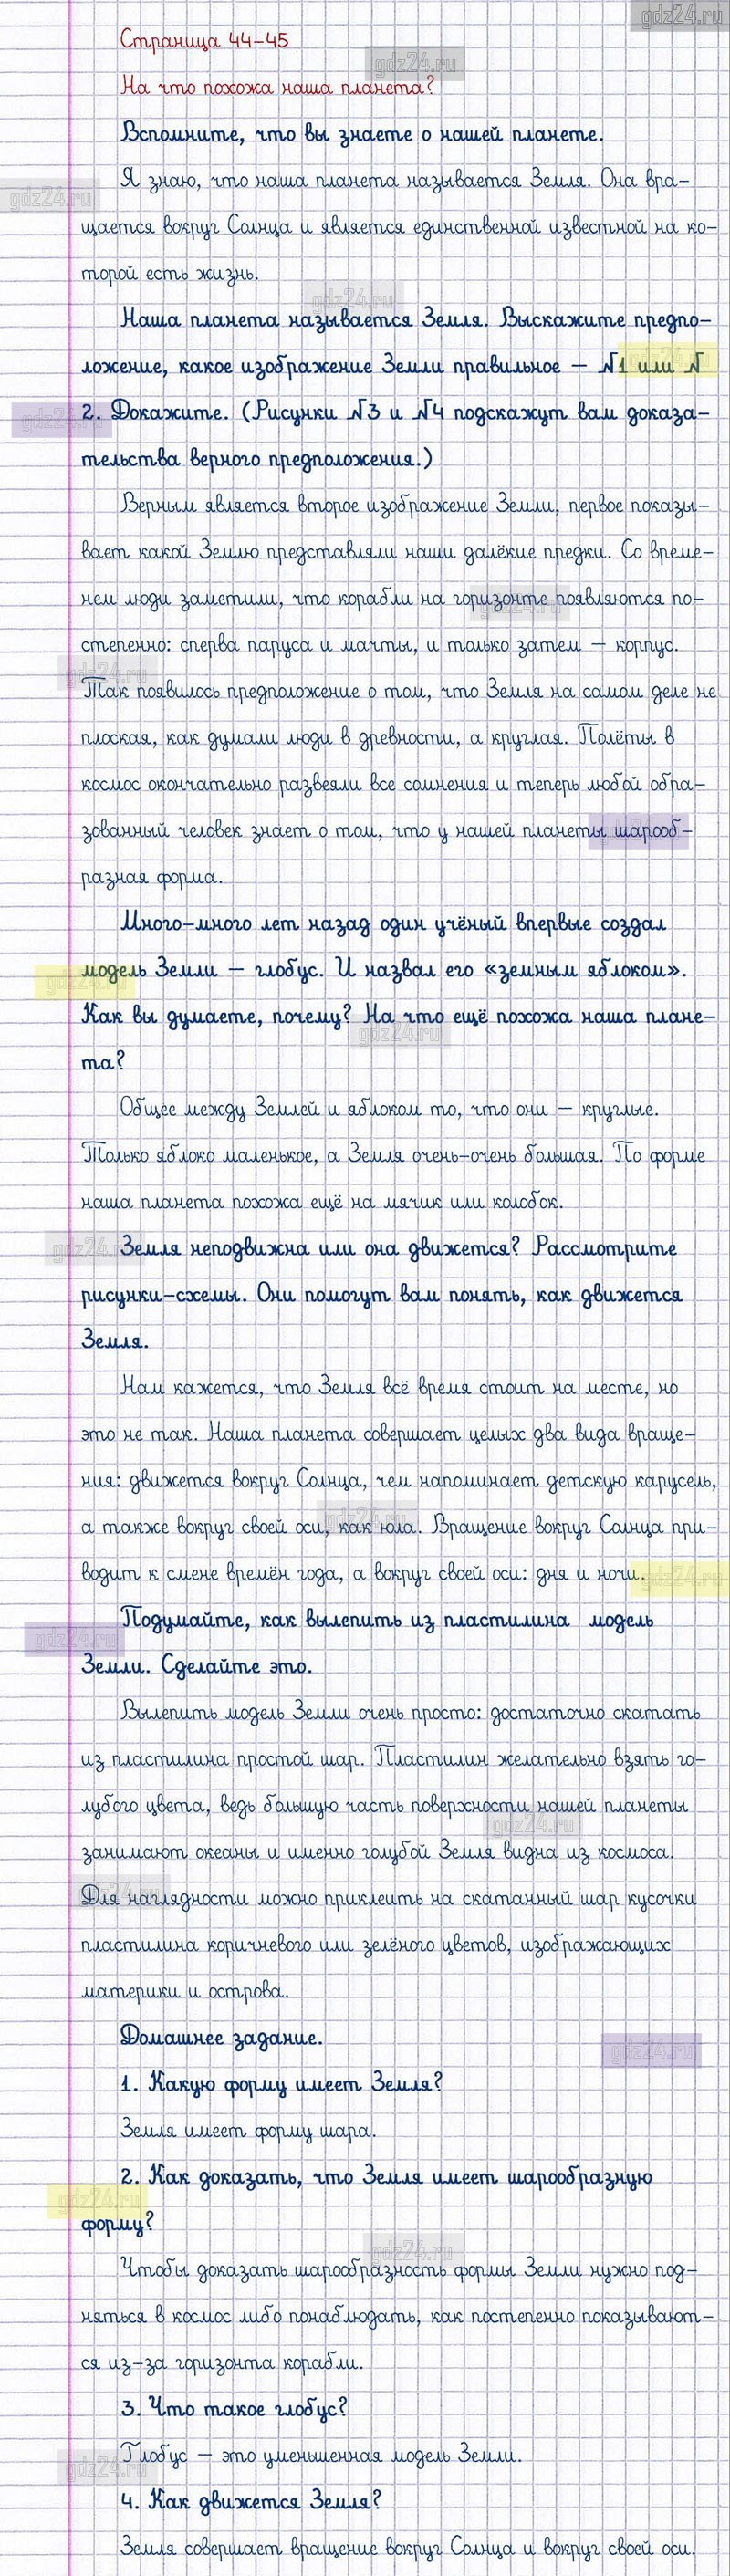 gdz24.ru
Страница 44-45
gdz24.ru
На что похожа наша планета?
Вспомните, что вы знаете о нашей планете.
Я знаю, что наша планета называется Земля. Она вра-
gdz24.ru
щается вокруг Солнца и является единственной известной на ко-
торой есть жизнь.
gdz24.ru
Наша планета называется Земля. Выскажите предпо-
ложение, какое изображение Земли правильное – №1 или №
2. Докажите. (Рисунки №3 и №4 подскажут вам доказа-
gdz24.ru
тельства верного предположения.)
Верным является второе изображение Земли, первое показы-
вает какой Землю представляли наши далёкие предки. Со време-
нем люди заметили, что корабли на горизонте появляются по-
gdz24.ru
степенно: сперва паруса и мачты, и только затем – корпус.
gdz24.ru
Так появилось предположение о том, что Земля на самом деле не
плоская, как думали люди в древности, а круглая. Полёты в
космос окончательно развеяли все сомнения и теперь любой обра-
зованный человек знает о том, что у нашей планеты шарооб-
разная форма.
Много-много лет назад один учёный впервые создал
модель Земли – глобус. И назвал его «земным яблоком».
gdz24.ru
Как вы думаете, почему? На что ещё похожа наша плане-
gdz24.ru
та?
Общее между Землей и яблоком то, что они – круглые.
Только яблоко маленькое, а Земля очень-очень большая. По форме
наша планета похожа ещё на мячик или колобок.
gdz24.ru
Земля неподвижна или она движется? Рассмотрите
рисунки-схемы. Они помогут вам понять, как движется
Земля.
Нам кажется, что Земля всё время стоит на месте, но
это не так. Наша планета совершает целых два вида враще-
ния: движется вокруг Солнца, чем напоминает детскую карусель,
gdz24.ru
а также вокруг своей оси, как юла. Вращение вокруг Солнца при-
водит к смене времён года, а вокруг своей оси: дня и ночи.
gdz24.ru
Подумайте, как вылепить из пластилина модель
gdz24.ru
Земли. Сделайте это.
Вылепить модель Земли очень просто: достаточно скатать
из пластилина простой шар. Пластилин желательно взять го-
лубого цвета, ведь большую часть поверхности нашей планеты
gdz24.ru
занимают океаны и именно голубой Земля видна из космоса.
gdz24.ru
Для наглядности можно приклеить на скатанный шар кусочки
пластилина коричневого или зелёного цветов, изображающих
материки и острова.
Домашнее задание.
gdz24.ru
1. Какую форму имеет Земля?
Земля имеет форму шара.
2. Как доказать, что Земля имеет шарообразную
gdz24.ru
форму?
gdz24.ru
Чтобы доказать шарообразность формы Земли нужно под-
няться в космос либо понаблюдать, как постепенно показывают-
ся из-за горизонта корабли.
3. Что такое глобус?
Глобус – это уменьшенная модель Земли.
gdz24.ru
4. Как движется Земля?
Земля совершает вращение вокруг Солнца и вокруг своей оси.